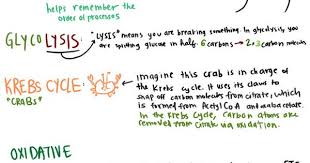 helps remember the
order of processes
GLYCOLYSIS:
"LYSIS" means you are breaking something. In glycolysis, you
are splitting glucose in half. 6 carbons → 2.3 carbon molecules
KREBS CYCLE:
"CRABS"
imagine this crab is in charge of
the Krebs cycle. It uses its claws to
snap off carbon molecules from citrate, which
is formed from Acetyl CoA and oxaloacetate.
In the Krebs cycle, carbon atoms are
removed from citrate via oxidation.
OXIDATIVE